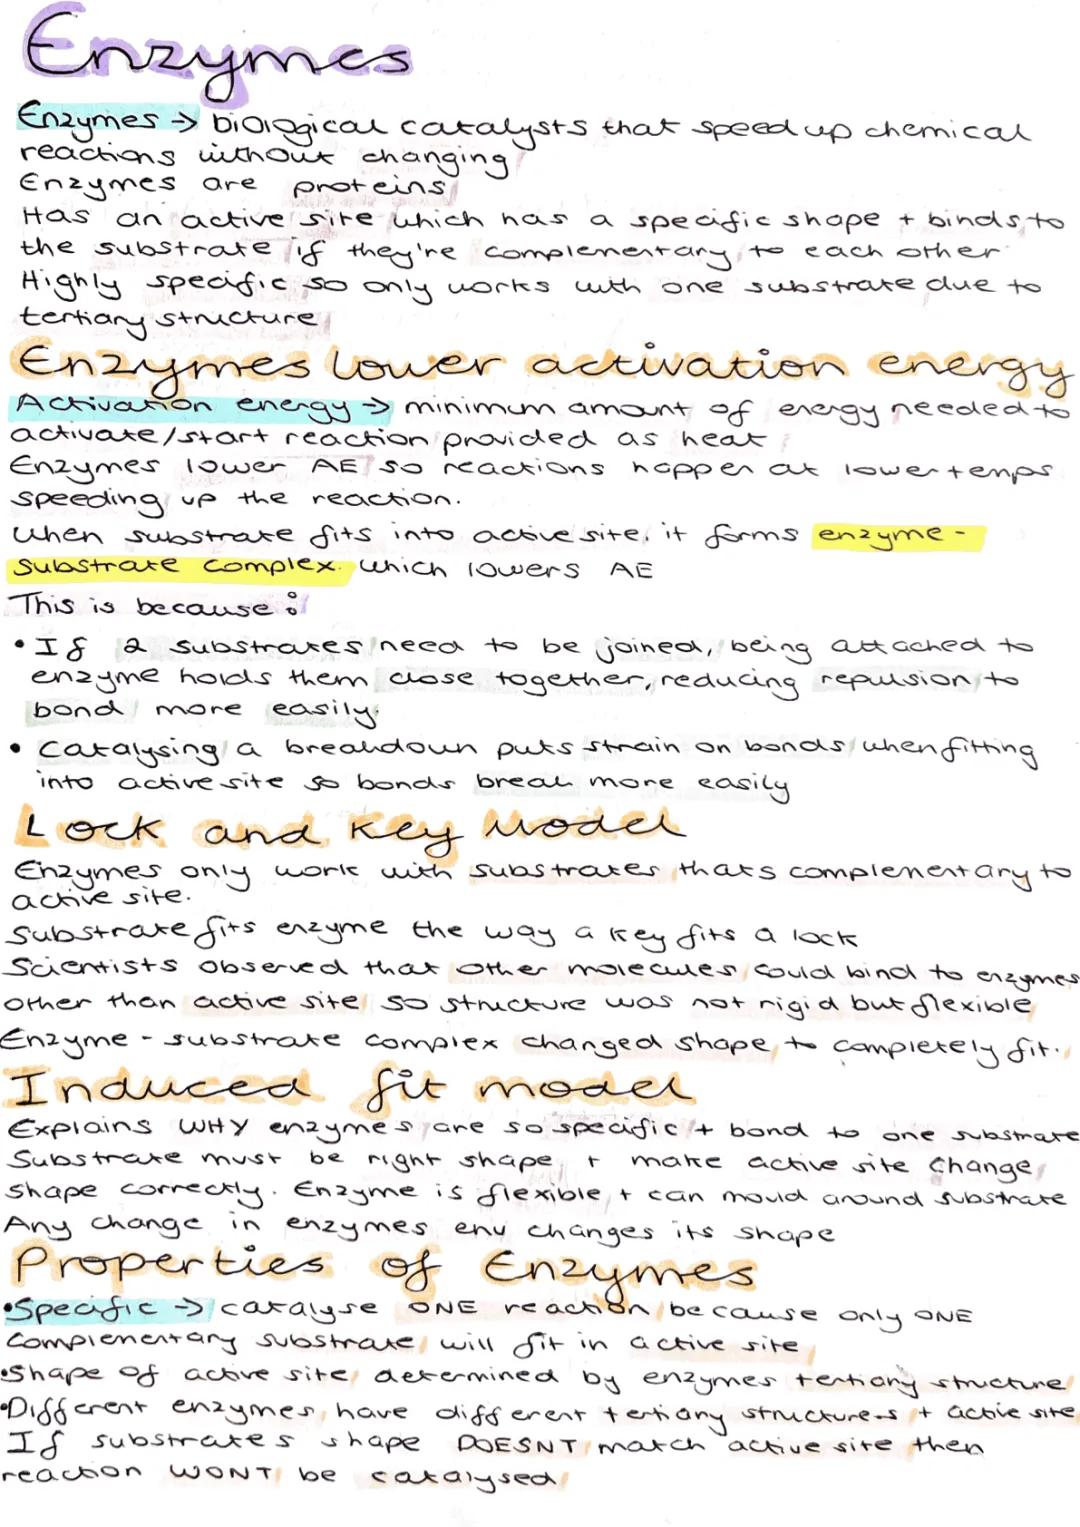 Enzymes
Enzymes → biological catalysts that speed up chemical
reactions without changing
Enzymes are proteins
Has an active site which has a specific shape + binds to
the substrate if they're complementary to each other
Highly specific so only works with one substrate due to
tertiary structure
Enzymes lower activation energy
Activation energy → minimum amount of energy needed to
activate/start reaction provided as heat
Enzymes lower AE so reactions happen at lower temps
speeding up the reaction.
When substrate fits into active site, it forms enzyme-
substrate complex. which lowers AE
This is because:
• If 2 substrates need to be joined, being attached to
enzyme holds them close together, reducing repulsion to
bond more easily.
• Catalysing a breakdown puts strain on bonds when fitting
into active site so bonds break more easily
Lock and Key Model
Enzymes only work with substrates thats complementary to
active site.
Substrate fits enzyme the way a key fits a lock
Scientists observed that other molecules could bind to enzymes
other than active site so structure was not rigid but flexible
Enzyme - substrate complex changed shape to completely fit.
Induced fit model
Explains WHY enzymes are so specific + bond to one substrate
Substrate must be right shape + make active site change
shape correctly. Enzyme is flexible + can mould around substrate
Any change in enzymes env changes its shape
Properties of Enzymes
•Specific → catalyse ONE reaction because only ONE
complementary substrate will fit in active site
•Shape of active site determined by enzymes tertiary structure
•Different enzymes have different tertiary structures + active site
If substrates shape DOESNT match active site then
reaction WONT be catalysed